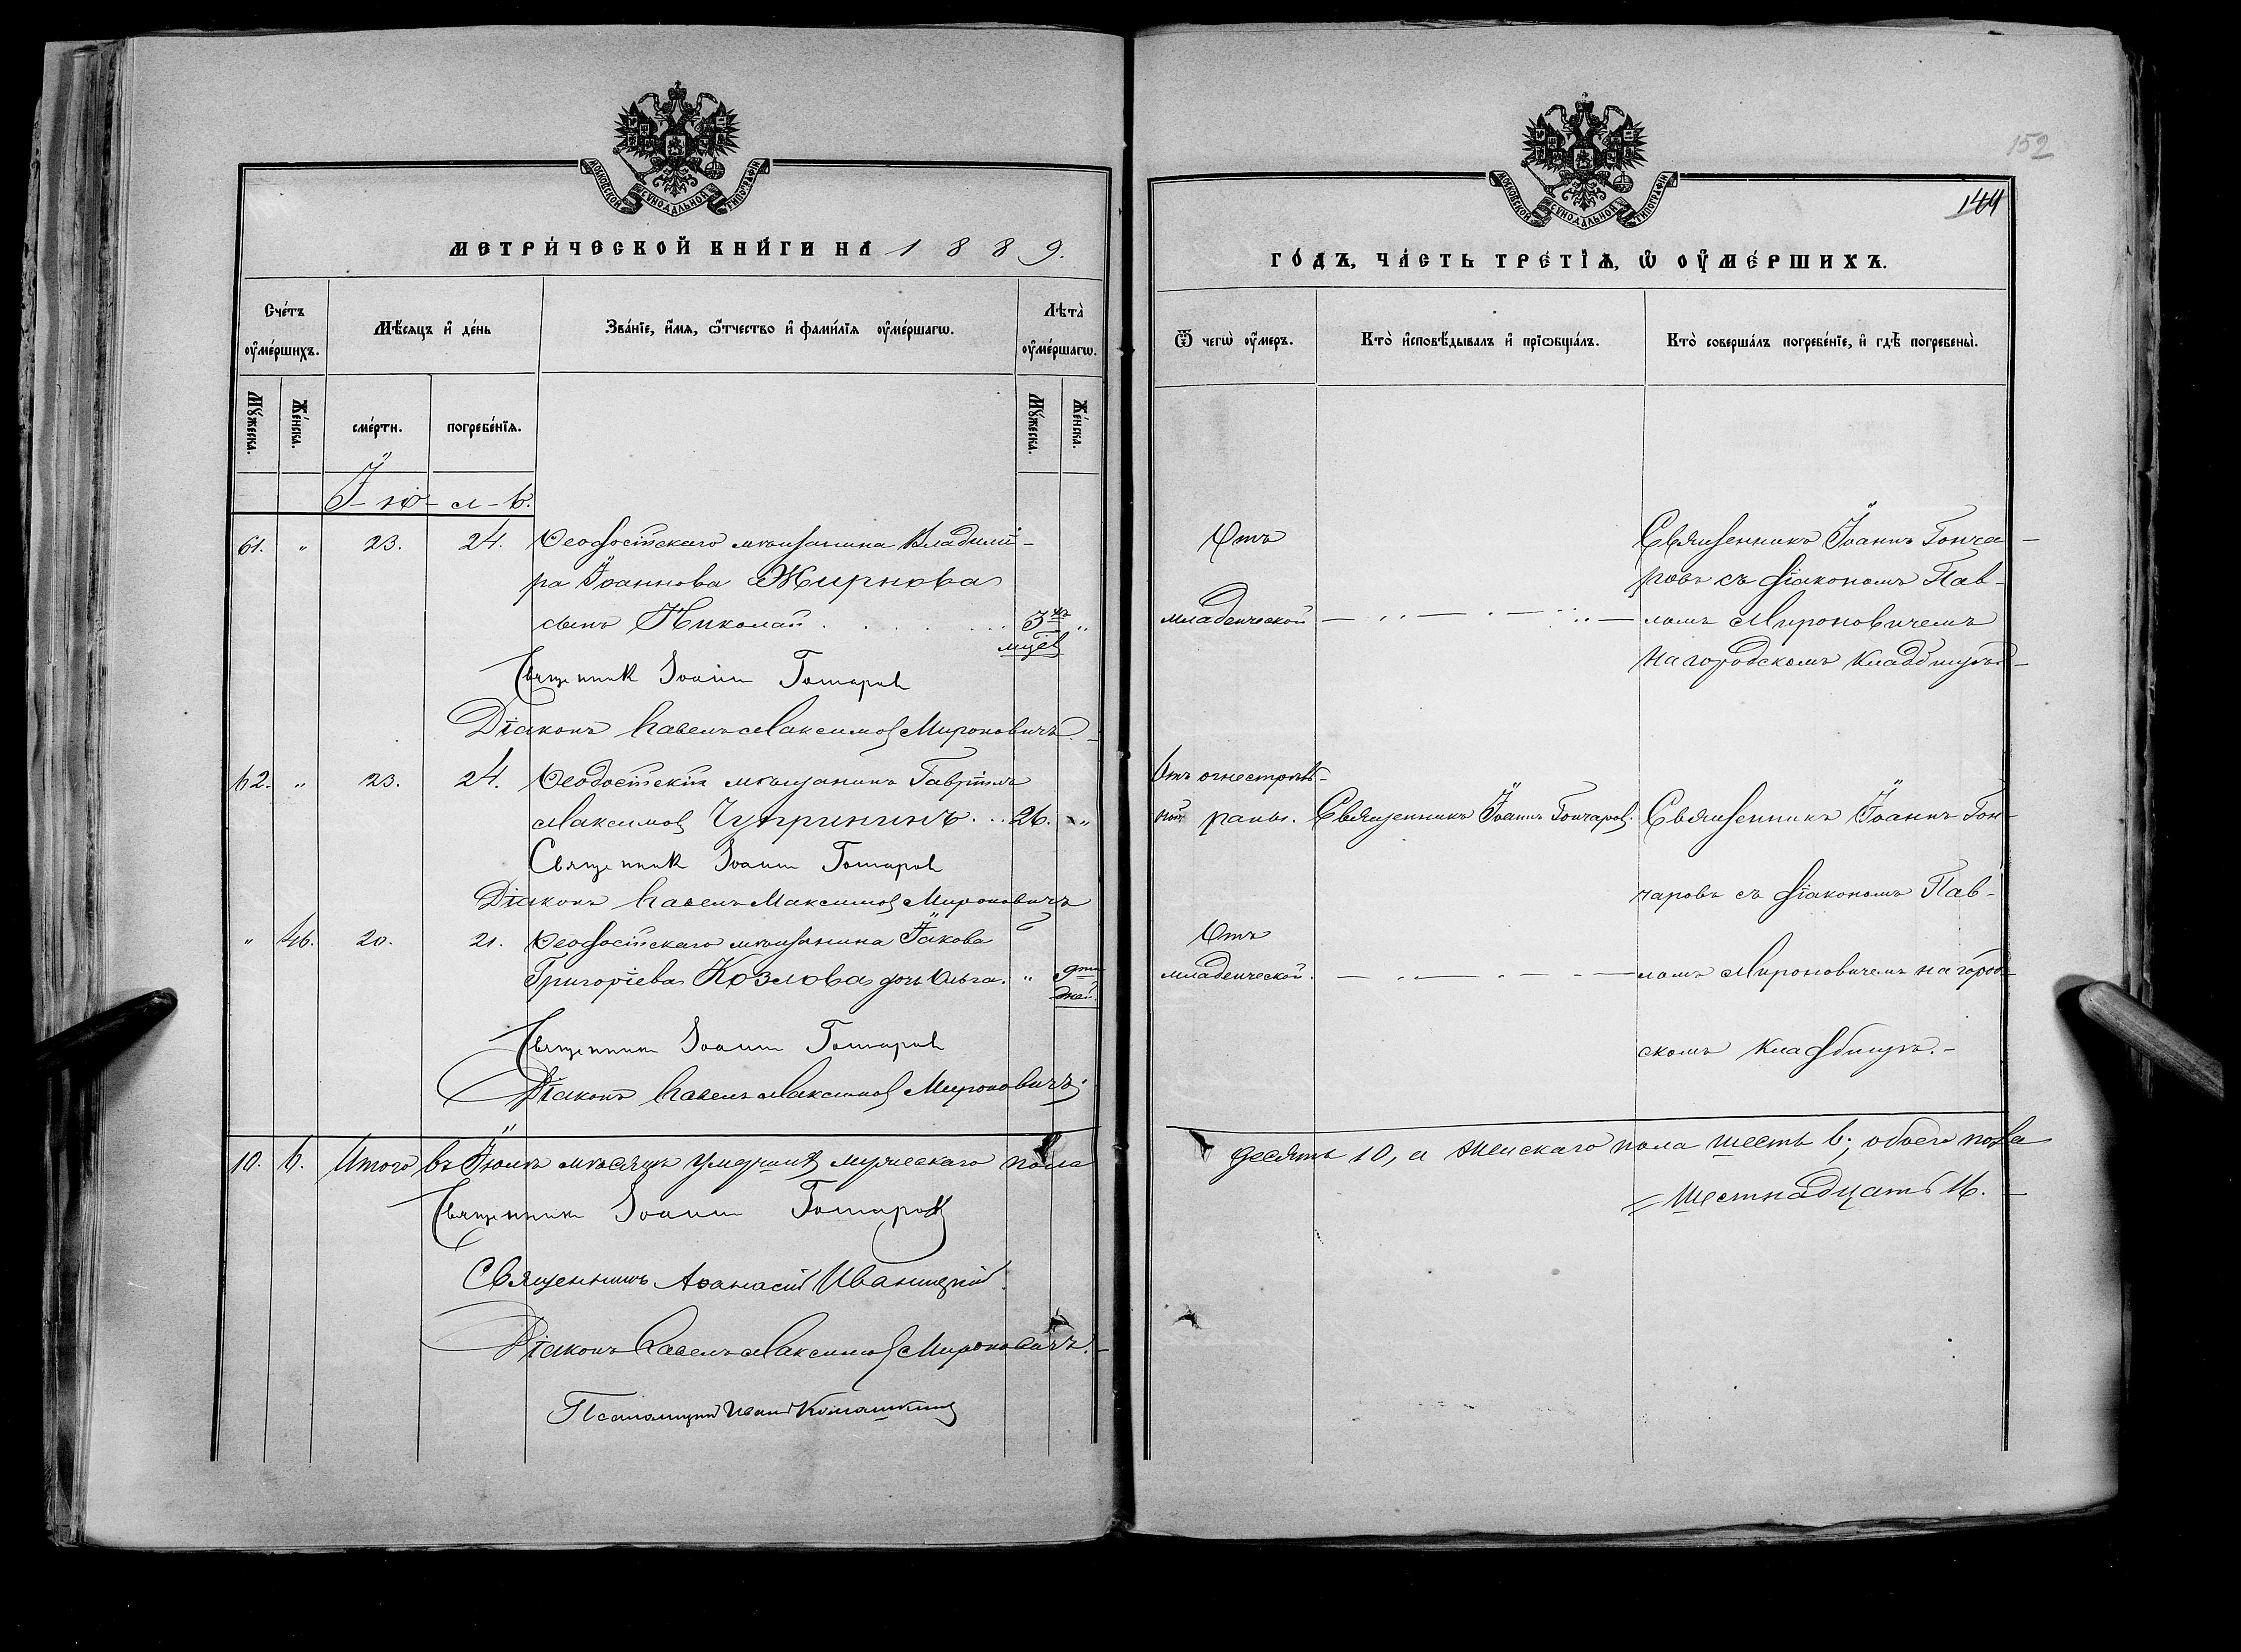 МОСКОВСКОЙ СѴНОДАЛЬНОЙ ТИПОГРАФІИ
МЕТРИ́ЧЕСКОЙ КНИ́ГИ НА 1889.
Сче́тъ ᲂу҆ме́ршихъ.
Мѣ́сяцъ и҆ де́нь
Зва́нїе, и҆́мя, ѻ҆́тчество и҆ фами́лїя ᲂу҆ме́ршагѡ.
Лѣта̀ ᲂу҆ме́ршагѡ.
Мꙋ́жеска.
Же́нска.
сме́рти.
погребе́нїѧ.
Мꙋ́жеска.
Же́нска.
І-ю-л-ь.
61. " 23. 24. Ѳеодосійскаго мѣщанина Владимі-
ра Іоаннова Жирнова
сынъ Николай 3хъ "
мцев
Священник Іоанн Гончаров
Діаконъ Павелъ Максимов Мироновичъ.
62. " 23. 24. Ѳеодосійскій мѣщанинъ Гавріилъ
Максимов Чупрининъ 26. "
Священник Іоанн Гончаров
Діаконъ Павелъ Максимов Мироновичъ
" 46. 20. 21. Ѳеодосійскаго мѣщанина Іакова
Григоріева Козлова дочь Ольга. " 9ти
дней.
Священник Іоанн Гончаров
Діаконъ Павелъ Максимов Мироновичъ.
10. 6. Итого въ Іюлѣ мѣсяцѣ умерших мужескаго пола
Священник Іоанн Гончаров
Священникъ Аѳанасій Иваницкій.
Діаконъ Павелъ Максимов Мироновичъ.
Псаломщик Иван
152
149
МОСКОВСКОЙ СѴНОДАЛЬНОЙ ТИПОГРАФІИ
ГО́ДЪ, ЧА́СТЬ ТРЕ́ТЇѦ, Ѡ҆ ОУ҆МЕ́РШИХЪ.
Ѿ чегѡ̀ ᲂу҆́меръ.
Кто̀ и҆сповѣ́дывалъ и҆ прїѡбща́лъ.
Кто̀ соверша́лъ погребе́нїе, и҆ гдѣ̀ погребены̀.
Отъ
младенческой
Священникъ Іоаннъ Гонча-
ровъ съ діакономъ Пав-
ломъ Мироновичемъ
на городскомъ кладбищѣ
Отъ огнестрѣль-
ной раны. Священникъ Іоаннъ Гончаров. Священникъ Іоаннъ Гон-
чаровъ съ діакономъ Пав-
Отъ
младенческой. ломъ Мироновичемъ на город-
скомъ кладбищѣ.
десять 10, а женскаго пола шесть 6; обоего пола
шестнадцать 16.